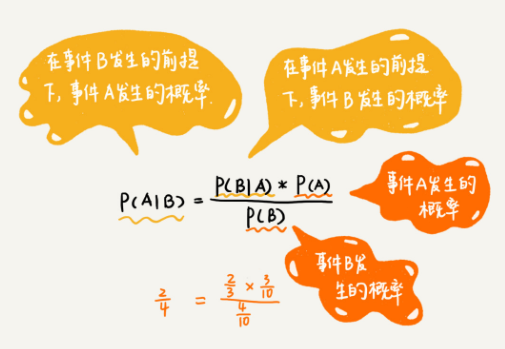 在事件B发生的前提
下,事件A发生的概率.
在事件A发生的前提
下,事件B发生的概率
P(A|B) = P(B|A) * P(A) / P(B)
事件A发生的
概率
事件B发
生的概率
2/4 = 2/3 × 3/10 / 4/10